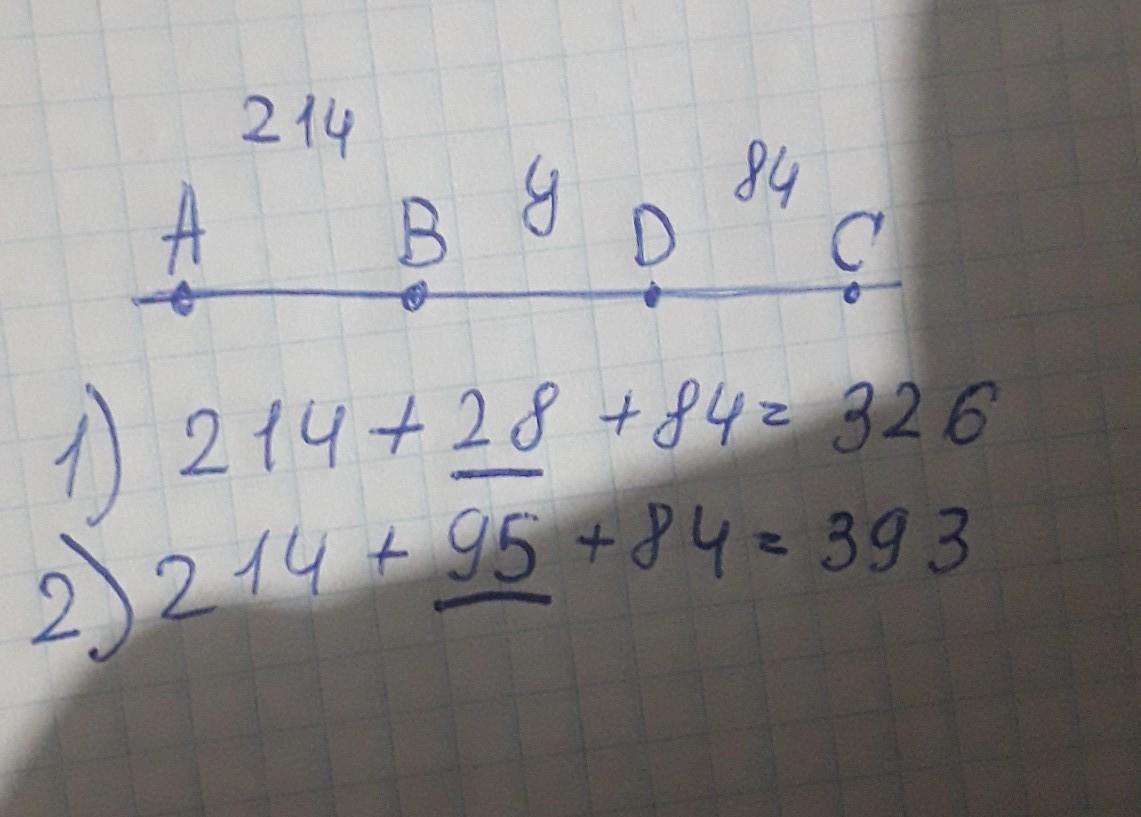 214 y 84
A B D C
1) 214 + 28 + 84 = 326
2) 214 + 95 + 84 = 393